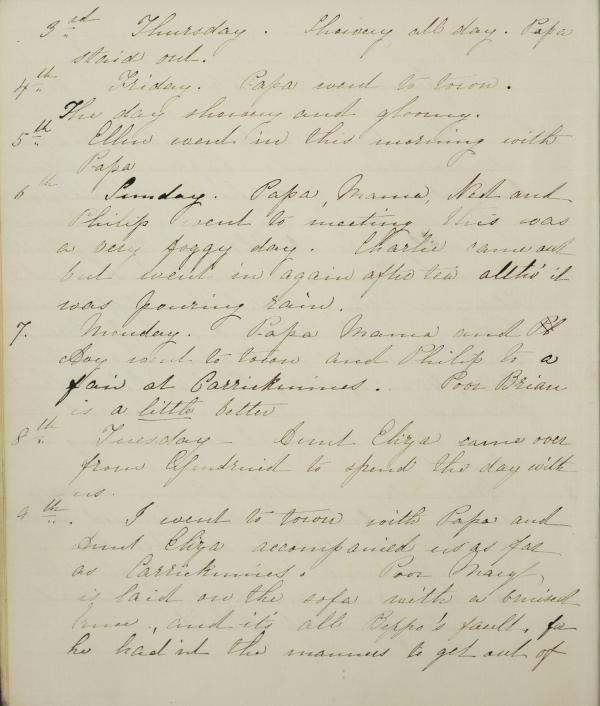 3rd Thursday. Showery all day. Papa
staid out.
4th Friday. Papa went to town.
The day showery and gloomy.
5th Ellen went in this morning with
Papa
6th Sunday. Papa, Mama, Ned and
Philip went to meeting, this was
a very foggy day. Charlie came out
but went in again after tea altho' it
was pouring rain.
7. Monday. Papa Mama and Ph
day went to town and Philip to a
fair at Carrickmines. Poor Brian
is a little better
8th Tuesday - Aunt Eliza came over
from to spend the day with
us.
9th. I went to town with Papa and
Aunt Eliza accompanied us as far
as Carrickmines. Poor Mary
is laid on the sofa with a bruised
knee, and it's all Beppo's fault, for
he had'nt the manners to get out of